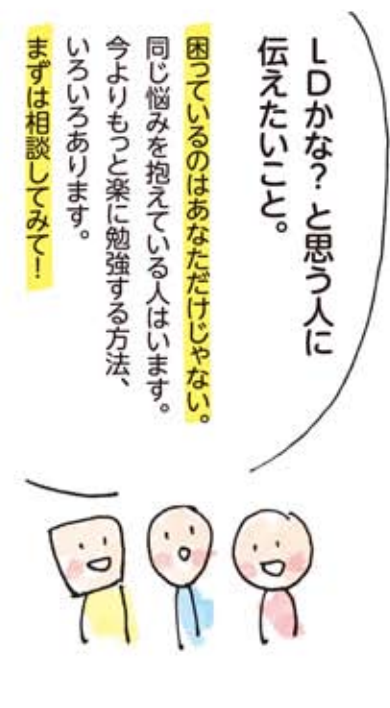 LDかな？と思う人に
伝えたいこと。
困っているのはあなただけじゃない。
同じ悩みを抱えている人はいます。
今よりもっと楽に勉強する方法、
いろいろあります。
まずは相談してみて！